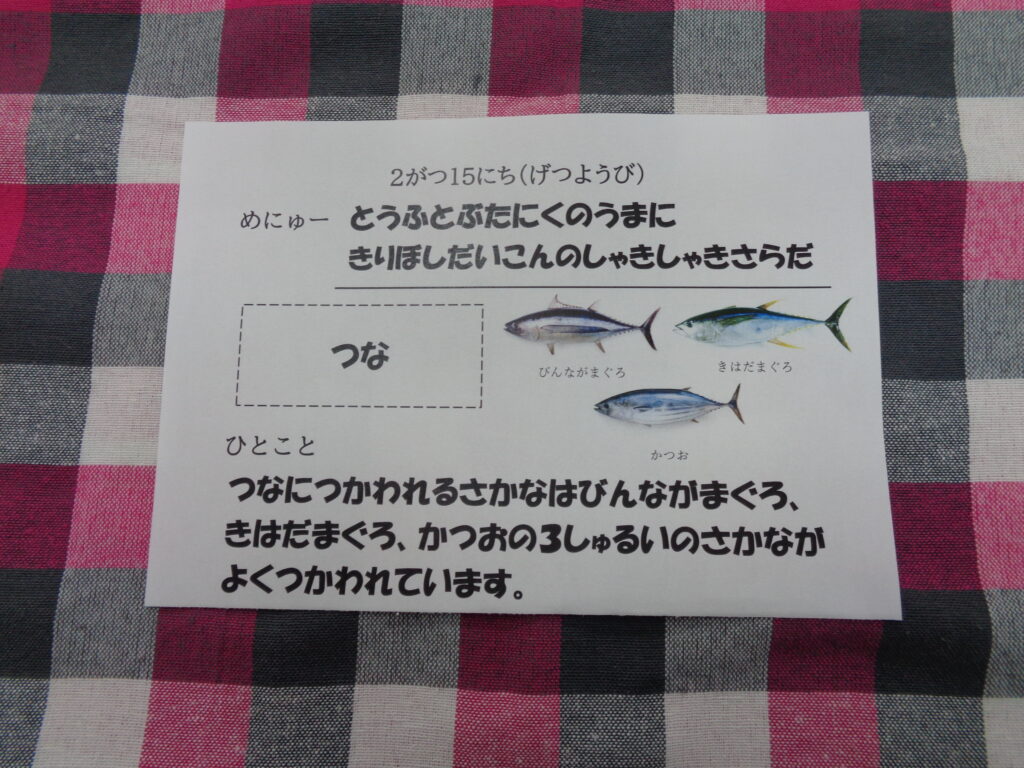 2がつ15にち(げつようび)
めにゅー とうふとぶたにくのうまに
きりぼしだいこんのしゃきしゃきさらだ
つな
びんながまぐろ
きはだまぐろ
かつお
ひとこと
つなにつかわれるさかなはびんながまぐろ、
きはだまぐろ、かつおの3しゅるいのさかなが
よくつかわれています。